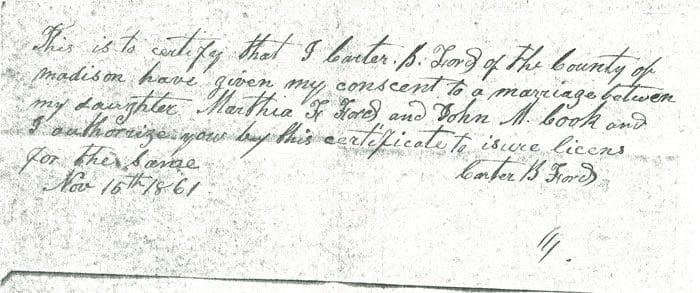 This is to certify that I Carter. B. Ford of the County of
madison have given my conscent to a marriage betwen
my daughter Marthia F. Ford, and John M. Cook and
I authorize you by this certificate to isure licens
for the same
Carter B Ford
Nov 16th 1861